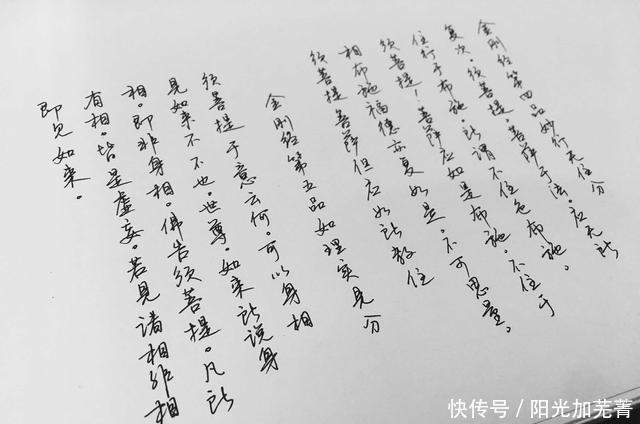 金刚经第四品妙行无住分
复次。须菩提。菩萨于法。应无所
住行于布施。所谓不住色布施。不住于
须菩提！菩萨应如是布施。不可思量。
相布施福德亦复如是。
须菩提菩萨但应如所教住
金刚经第五品如理实见分
须菩提于意云何。可以身相
见如来不不也。世尊。如来所说身
相。即非身相。佛告须菩提。凡所
有相。皆是虚妄。若见诸相非相
即见如来。
快传号／阳光加芜菁